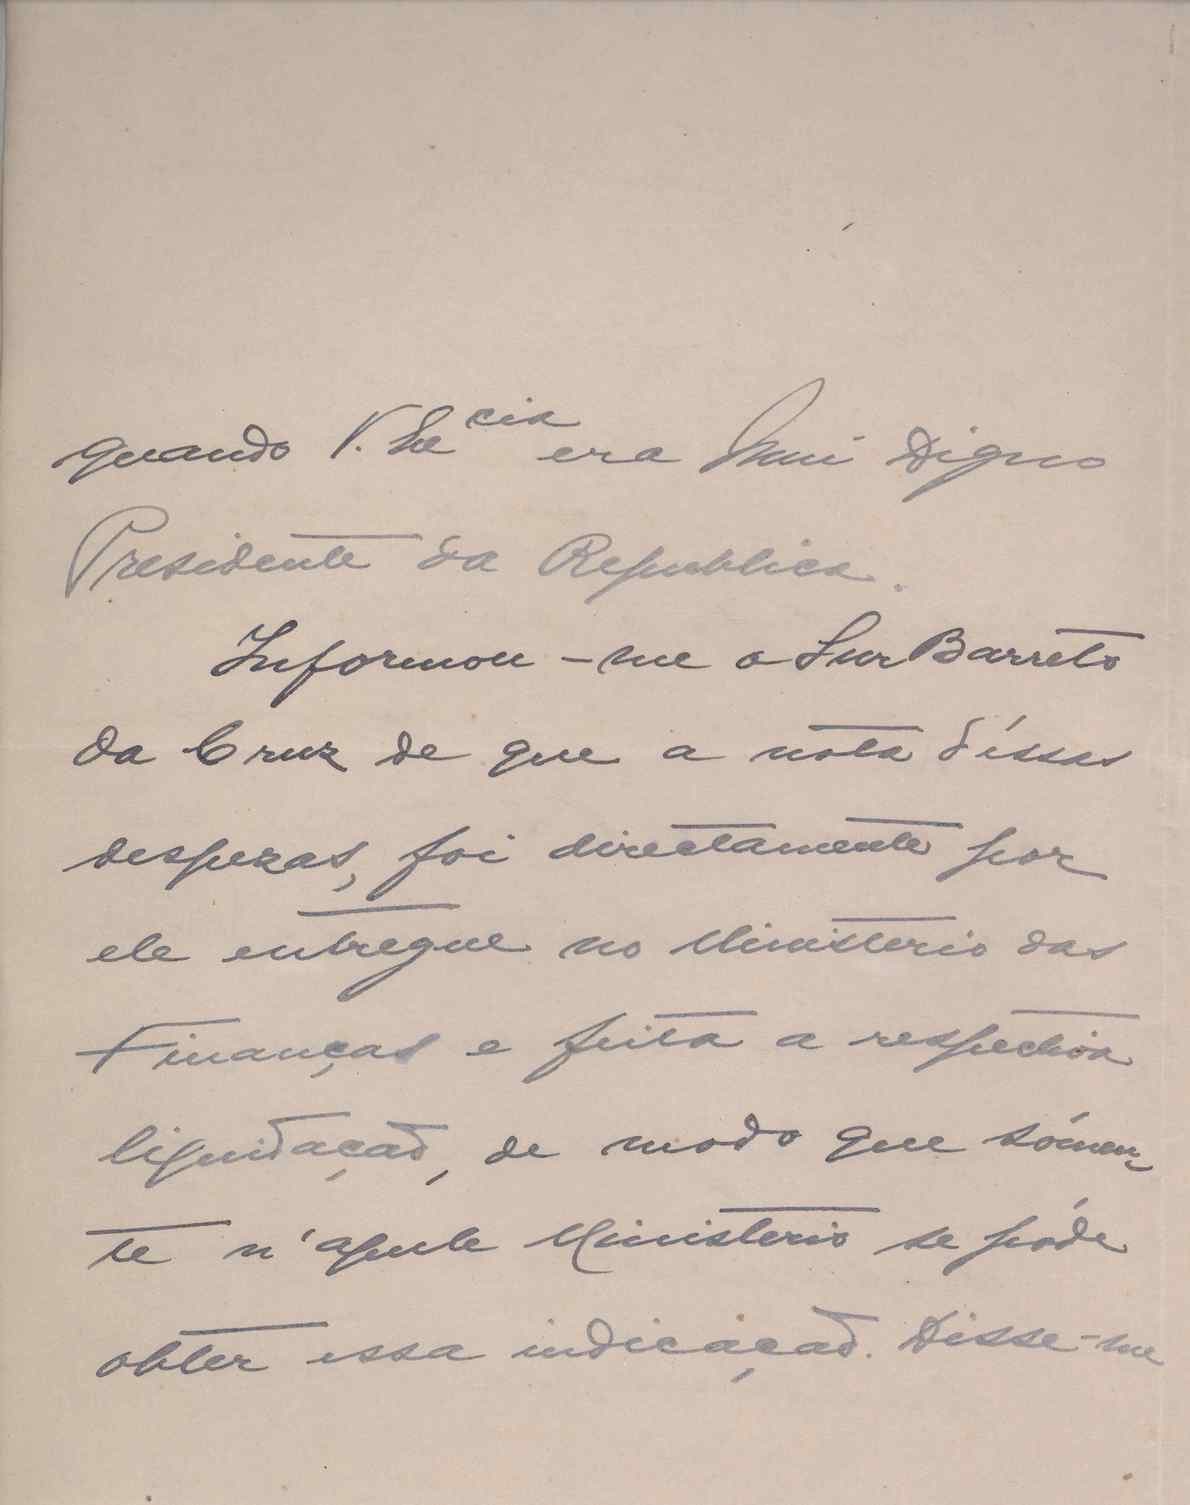 quando V. Excia era Mui Digno
Presidente da Republica.
Informou-me o Snr Barreto
da Cruz de que a nota d'éssas
despezas, foi directamente por
ele entregue no Ministerio das
Finanças e feita a respectiva
liquidação, de modo que sómen-
te n'aquele Ministerio se póde
obter essa indicação. Disse-me